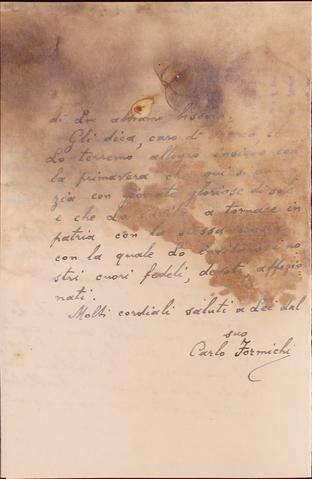 di Lei abbiamo
Gli dica, caro di
Lo terremo allegro insieme con
la primavera che qui s'
zia con giornate gloriose di sole
e che Lo a tornare in
patria con la stessa
con la quale Lo no
stri cuori fedeli, devoti, affezio
nati.
Molti cordiali saluti a Lei dal
suo
Carlo Formichi